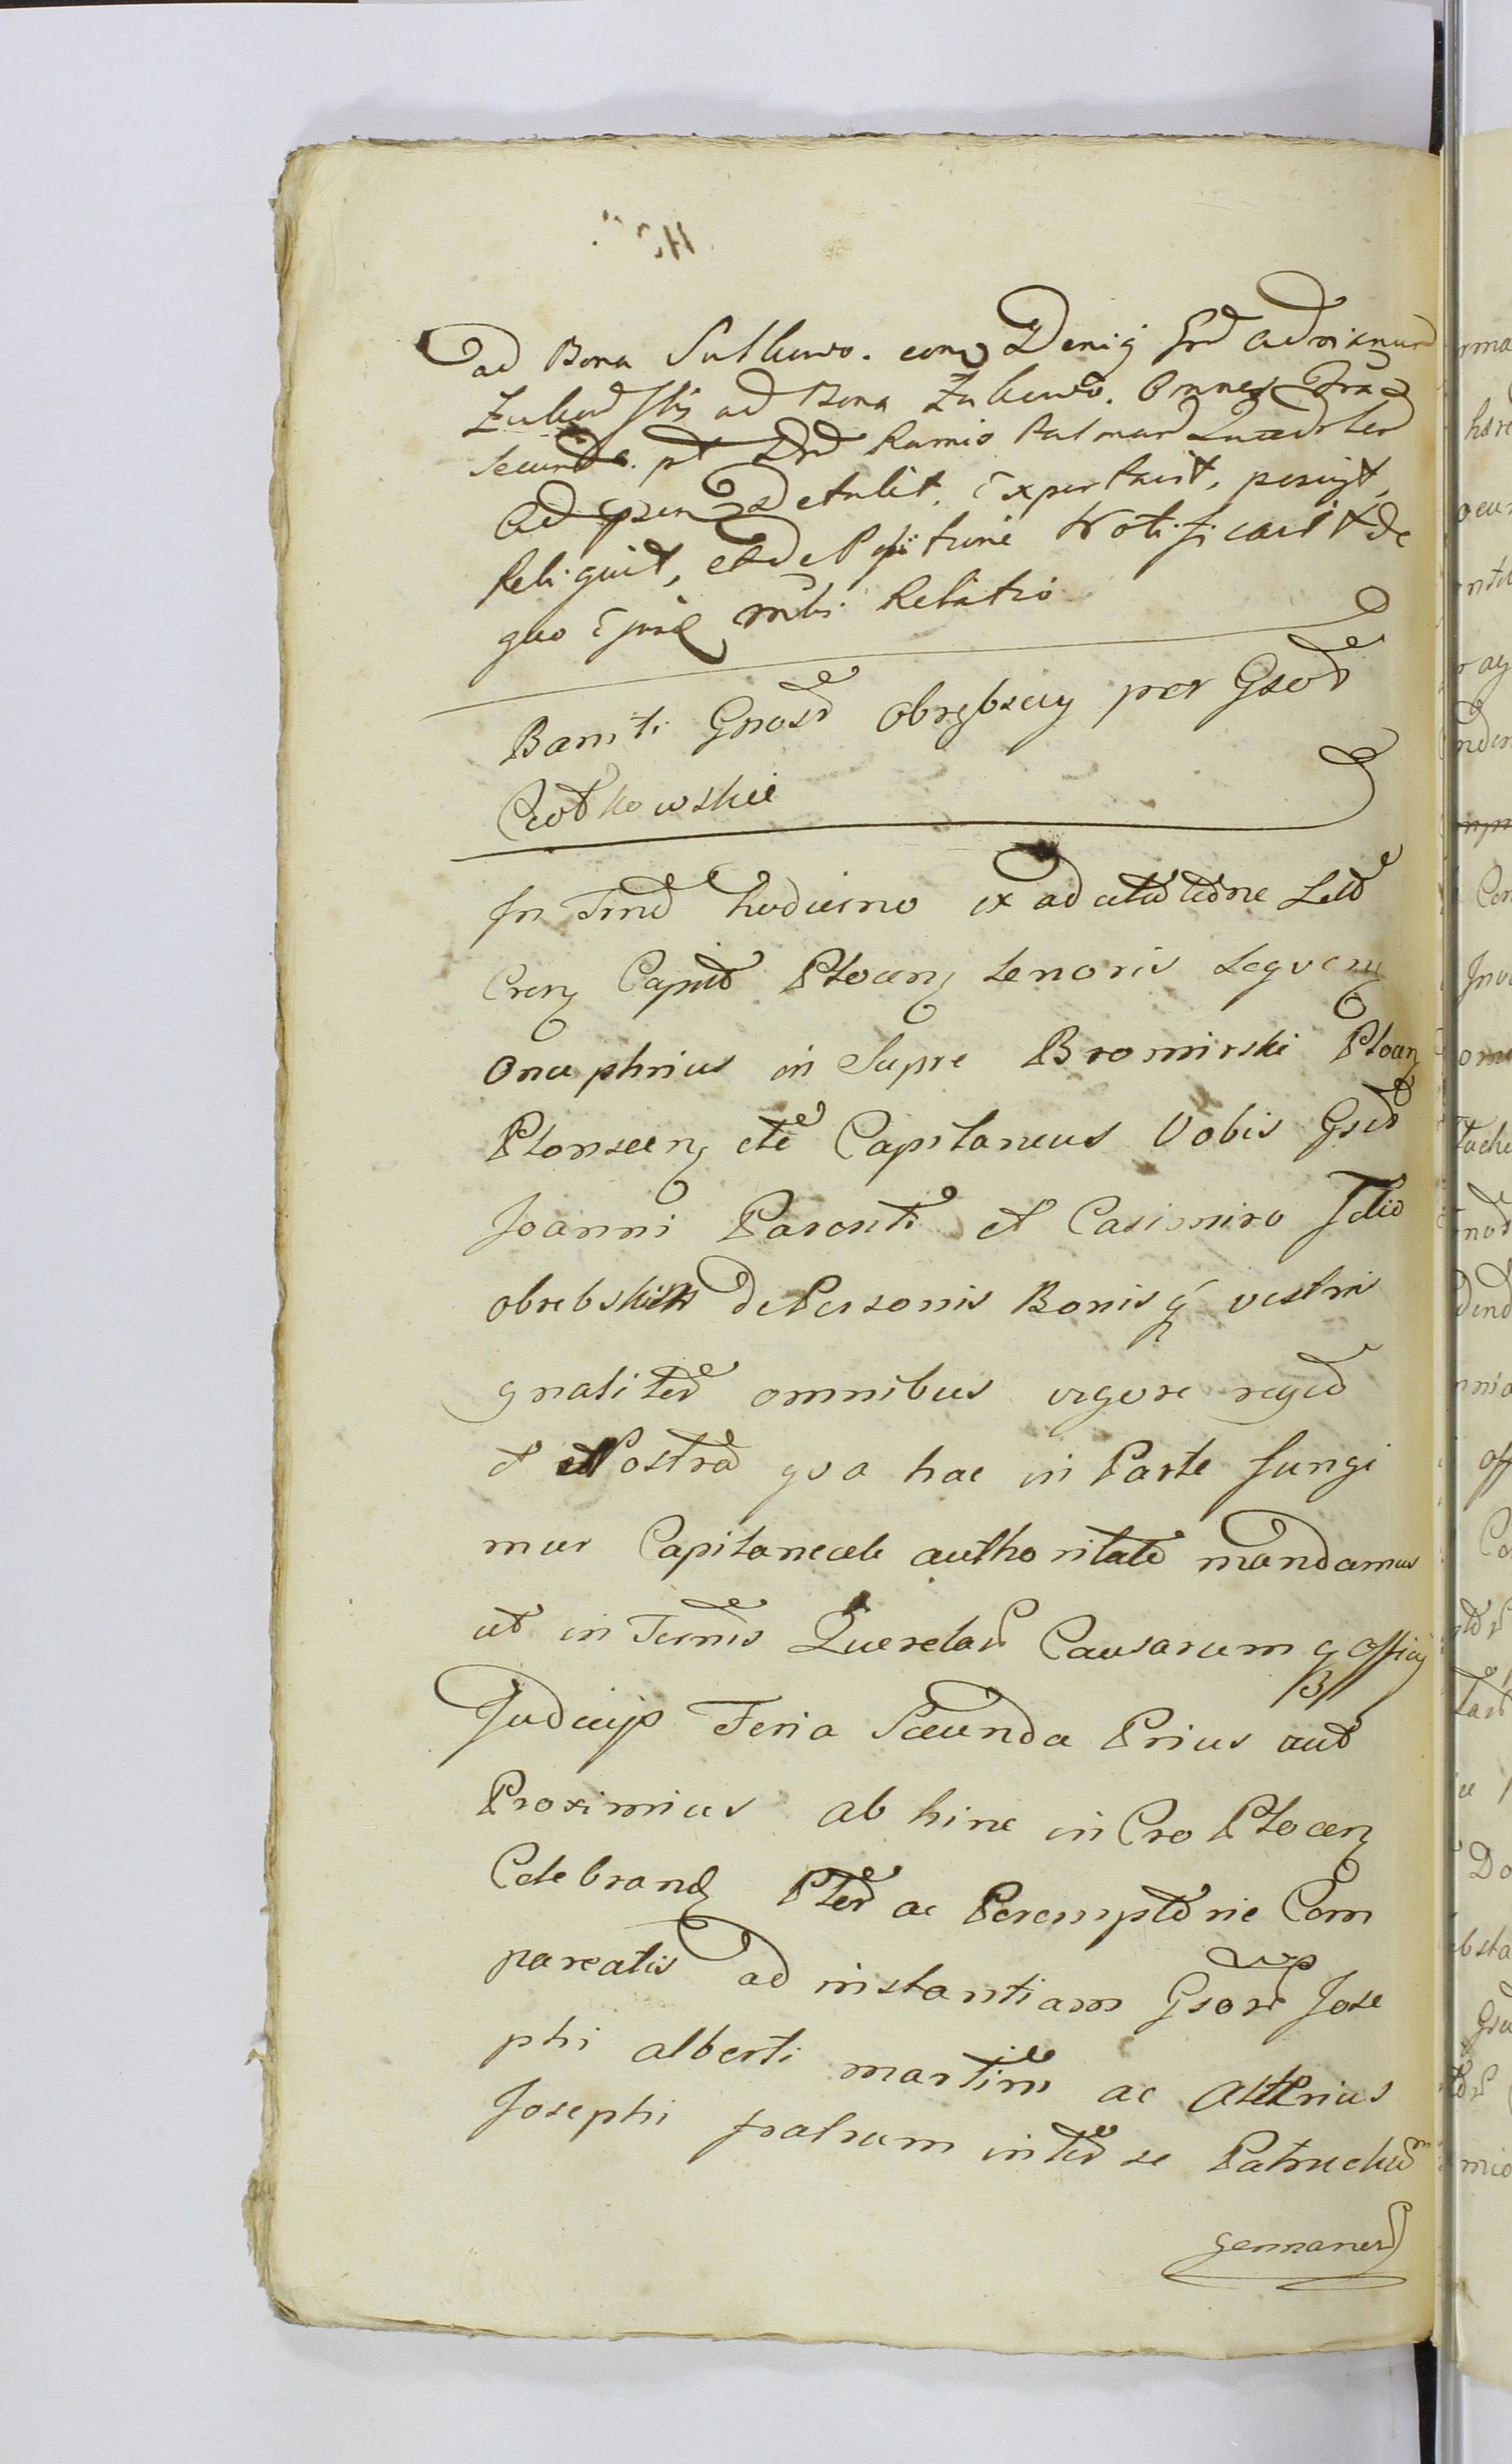 ad Bona Sulkowo. eony Deniq Grd Adrianum
Zukowskij ad Bona Zukowo. Omnes Fra
Secunda. pt Dnd Ramis Palmar
Detulit, Exportavit, posuit,
Reliquit, Notificavit de
quo Ejusd mihi Relatio
Baniti Gnosd Obrębscy per Gsod
Czotkowskie
In Trmd hodierno ex ad cita tione Litd
Creng Capitd Ploceng tenoris sequeng
Onuphrius in Supre Bromirski Ploceng
Plonsceng etc Capitaneus Vobis Gsd
Joanni Parenti et Casimiro filio
obrebskim de Personis Bonis q vestris
gnaliter omnibus vigore regia
et Nostra qva hac in Parte fungi
mur Capitaneale authoritate mandamus
ut in Termis Querelar Causarum q offici
Judiciis Feria Secunda Prius aut
Proximius ab hinc in Cro Ploceng
Celebrand Pter ac Peremptorie Com
pareatis ad instantiam Gsord Jose
phi alberti martini ac Alterius
Josephi fratrum inter se Patruelium
germanor